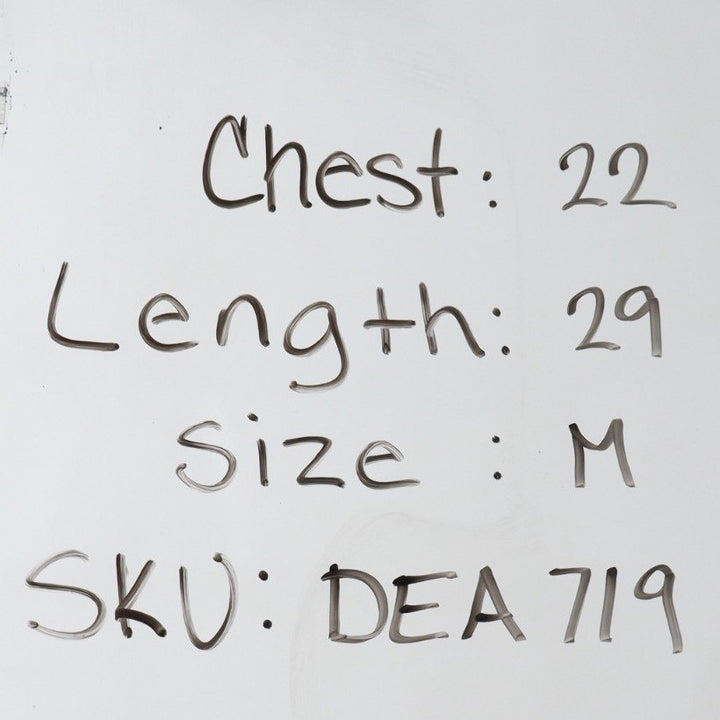 Chest: 22
Length: 29
Size : M
SKU: DEA 719